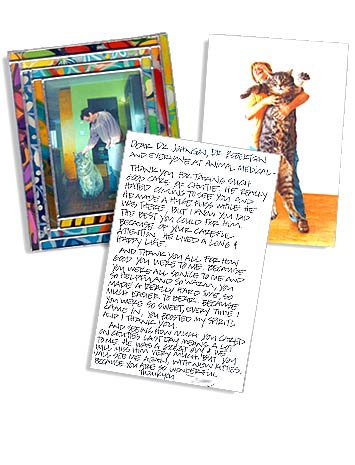 DEAR DR JOHNSON, DR ROBERTSON
AND EVERYONE AT ANIMAL MEDICAL -
THANK YOU FOR TAKING SUCH
GOOD CARE OF CHATIE. HE REALLY
HATED GOING TO SEE YOU AND
HE MADE A HUGE FUSS WHILE HE
WAS THERE. BUT I KNOW YOU DID
THE BEST YOU COULD FOR HIM.
BECAUSE OF YOUR CAREFUL
ATTENTION HE LIVED A LONG &
HAPPY LIFE.
AND THANK YOU ALL FOR HOW
GOOD YOU WERE TO ME. BECAUSE
YOU WERE ALL SO NICE TO ME AND
SO HELPFUL AND SO WARM, YOU
MADE A REALLY HARD TIME SO
MUCH EASIER TO BEAR. BECAUSE
YOU WERE SO SWEET, EVERY TIME I
CAME IN, YOU BOOSTED MY SPIRITS
AND I THANK YOU.
AND SEEING HOW MUCH YOU CARED
ON LAST DAY MEANS A LOT
TO ME. HE WAS A GREAT GUY & WE
WILL MISS HIM VERY MUCH. BUT YOU
WILL SEE ME AGAIN, WITH NEW KITTIES.
BECAUSE YOU ARE SO WONDERFUL
THANK YOU